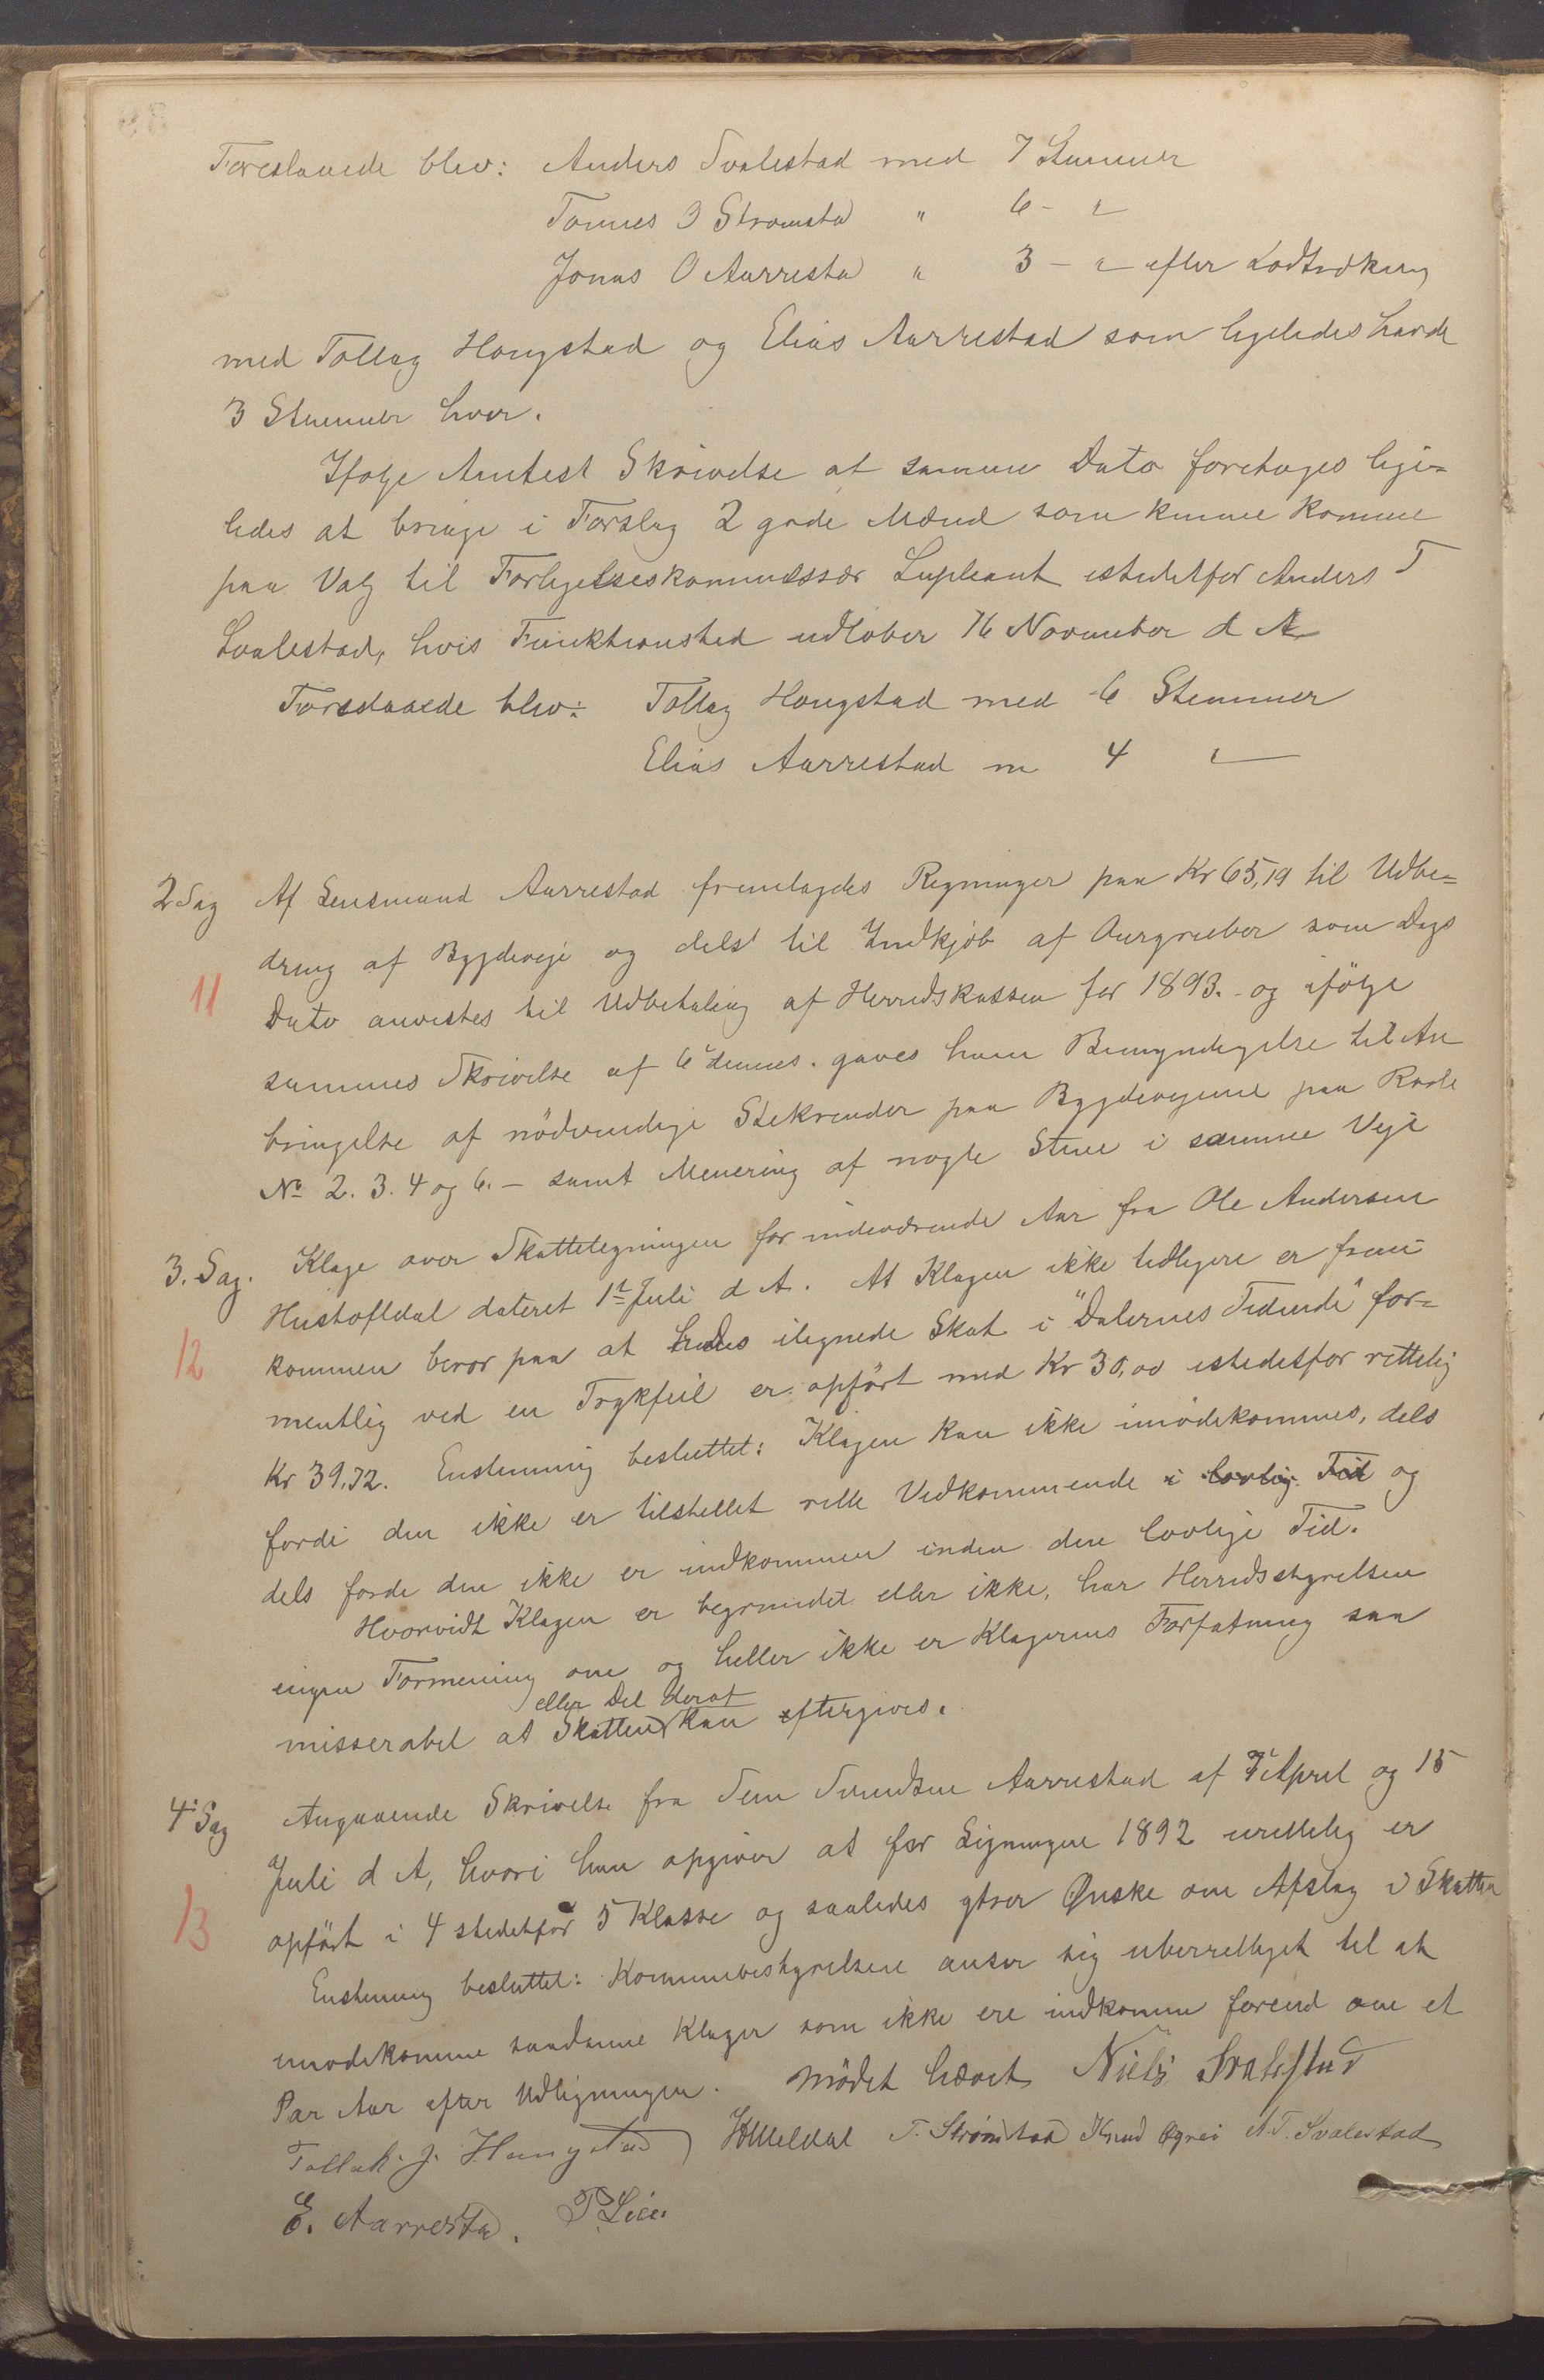 Foreslaaede blev: Anders Svalestad med 7 Stemmer
Tønnes O Strømstad " 6 - "
Jonas O Aarrestad " 3 - " efter Lodtrækning
med Tollag Hougstad og Elias Aarrestad som ligeledes havde
3 Stemmer hver.
Ifølge Amtets Skrivelse af samme Dato foretoges lige=
ledes at bringe i Forslag 2 gode Mænd som kunne komme
paa Valg til Forligelseskommissær Supleant istedetfor Anders T
Svalestad, hvis Funktionstid udløber 16 November d A
Foreslaaede blev: Tollag Hougstad med 6 Stemmer
Elias Aarrestad m 4 "
2 Sag Af Lensmand Aarrestad fremlagdes Regninger paa Kr 65,19 til Udbe=
dring af Bygdeveje og dels til Indkjøb af Aurgruber som Dags
11
Dato anvistes til Udbetaling af Herredskassen for 1893. - og ifølge
sammes Skrivelse af 6te dennes. gaves ham Bemyndigelse til An
bringelse af nödvendige Stikrender paa Bygdevejene paa Rode
No 2. 3. 4 og 6. - samt Minering af nogle Stene i samme Veje
3. Sag. Klage over Skatteligningen for indeværende Aar fra Ole Andersen
Hustoftdal dateret 1st Juli d A. At Klagen ikke tidligere er frem=
12
kommen beror paa at hans ilignede Skat i "Dalernes Tidende" for=
mentlig ved en Trykfeil er opfört med Kr 30,00 istedetfor rettelig
Kr 39,72. Enstemmig besluttet: Klagen kan ikke imødekommes, dels
fordi den ikke er tilstillet rette Vedkommende i lovlig Tid og
dels fordi den ikke er indkommen inden den lovlige Tid.
Hvorvidt Klagen er begrundet eller ikke, har Herredsstyrelsen
ingen Formening om og heller ikke er Klagerens Forfatning saa
eller Del deraf
misserabel at Skatten kan eftergives.
4 Sag Angaaende Skrivelse fra Sven Svendsen Aarrestad af 7 April og 15
Juli d A, hvori han opgiver at for Ligningen 1892 urettelig er
13
opfört i 4 stedetfor 5 Klasse og saaledes ytrer Ønske om Afslag i Skatten
Enstemmig besluttet: Kommunestyrelsen anser sig uberettiget til at
imødekomme saadanne Klager som ikke ere indkomne førend om et
Par Aar efter Udligningen. Mödet hævet Niels Svalestad
Tollak. J. Haugstad T. Strømstad Knud Ognei A. T. Svalestad
E. Aarrestad. P. Lie.